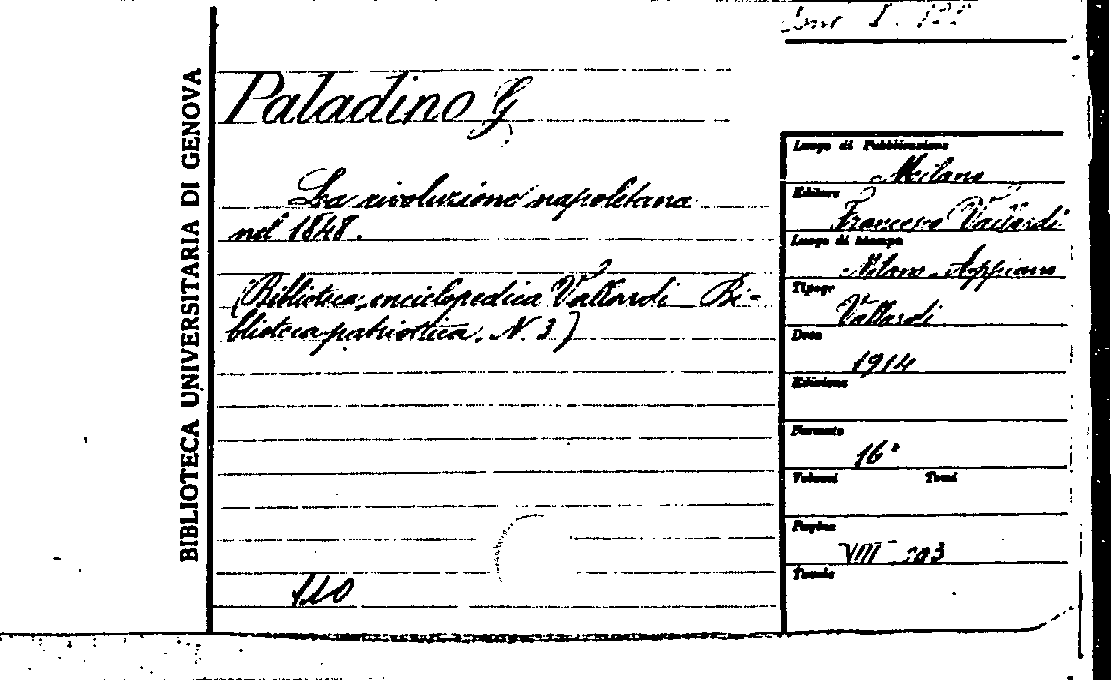 BIBLIOTECA UNIVERSITARIA DI GENOVA
Paladino G
La rivoluzione napoletana
nel 1848.
(Biblioteca enciclopedica Vallardi Bi-
blioteca patriottica. N. 3)
110
Luogo di Pubblicazione
Milano
Editore
Francesco Vallardi
Luogo di stampa
Milano - Appiano
Tipogr
Vallardi
Data
1914
Edizione
Formato
16°
Volumi Tomi
Pagine
VIII
Tavole